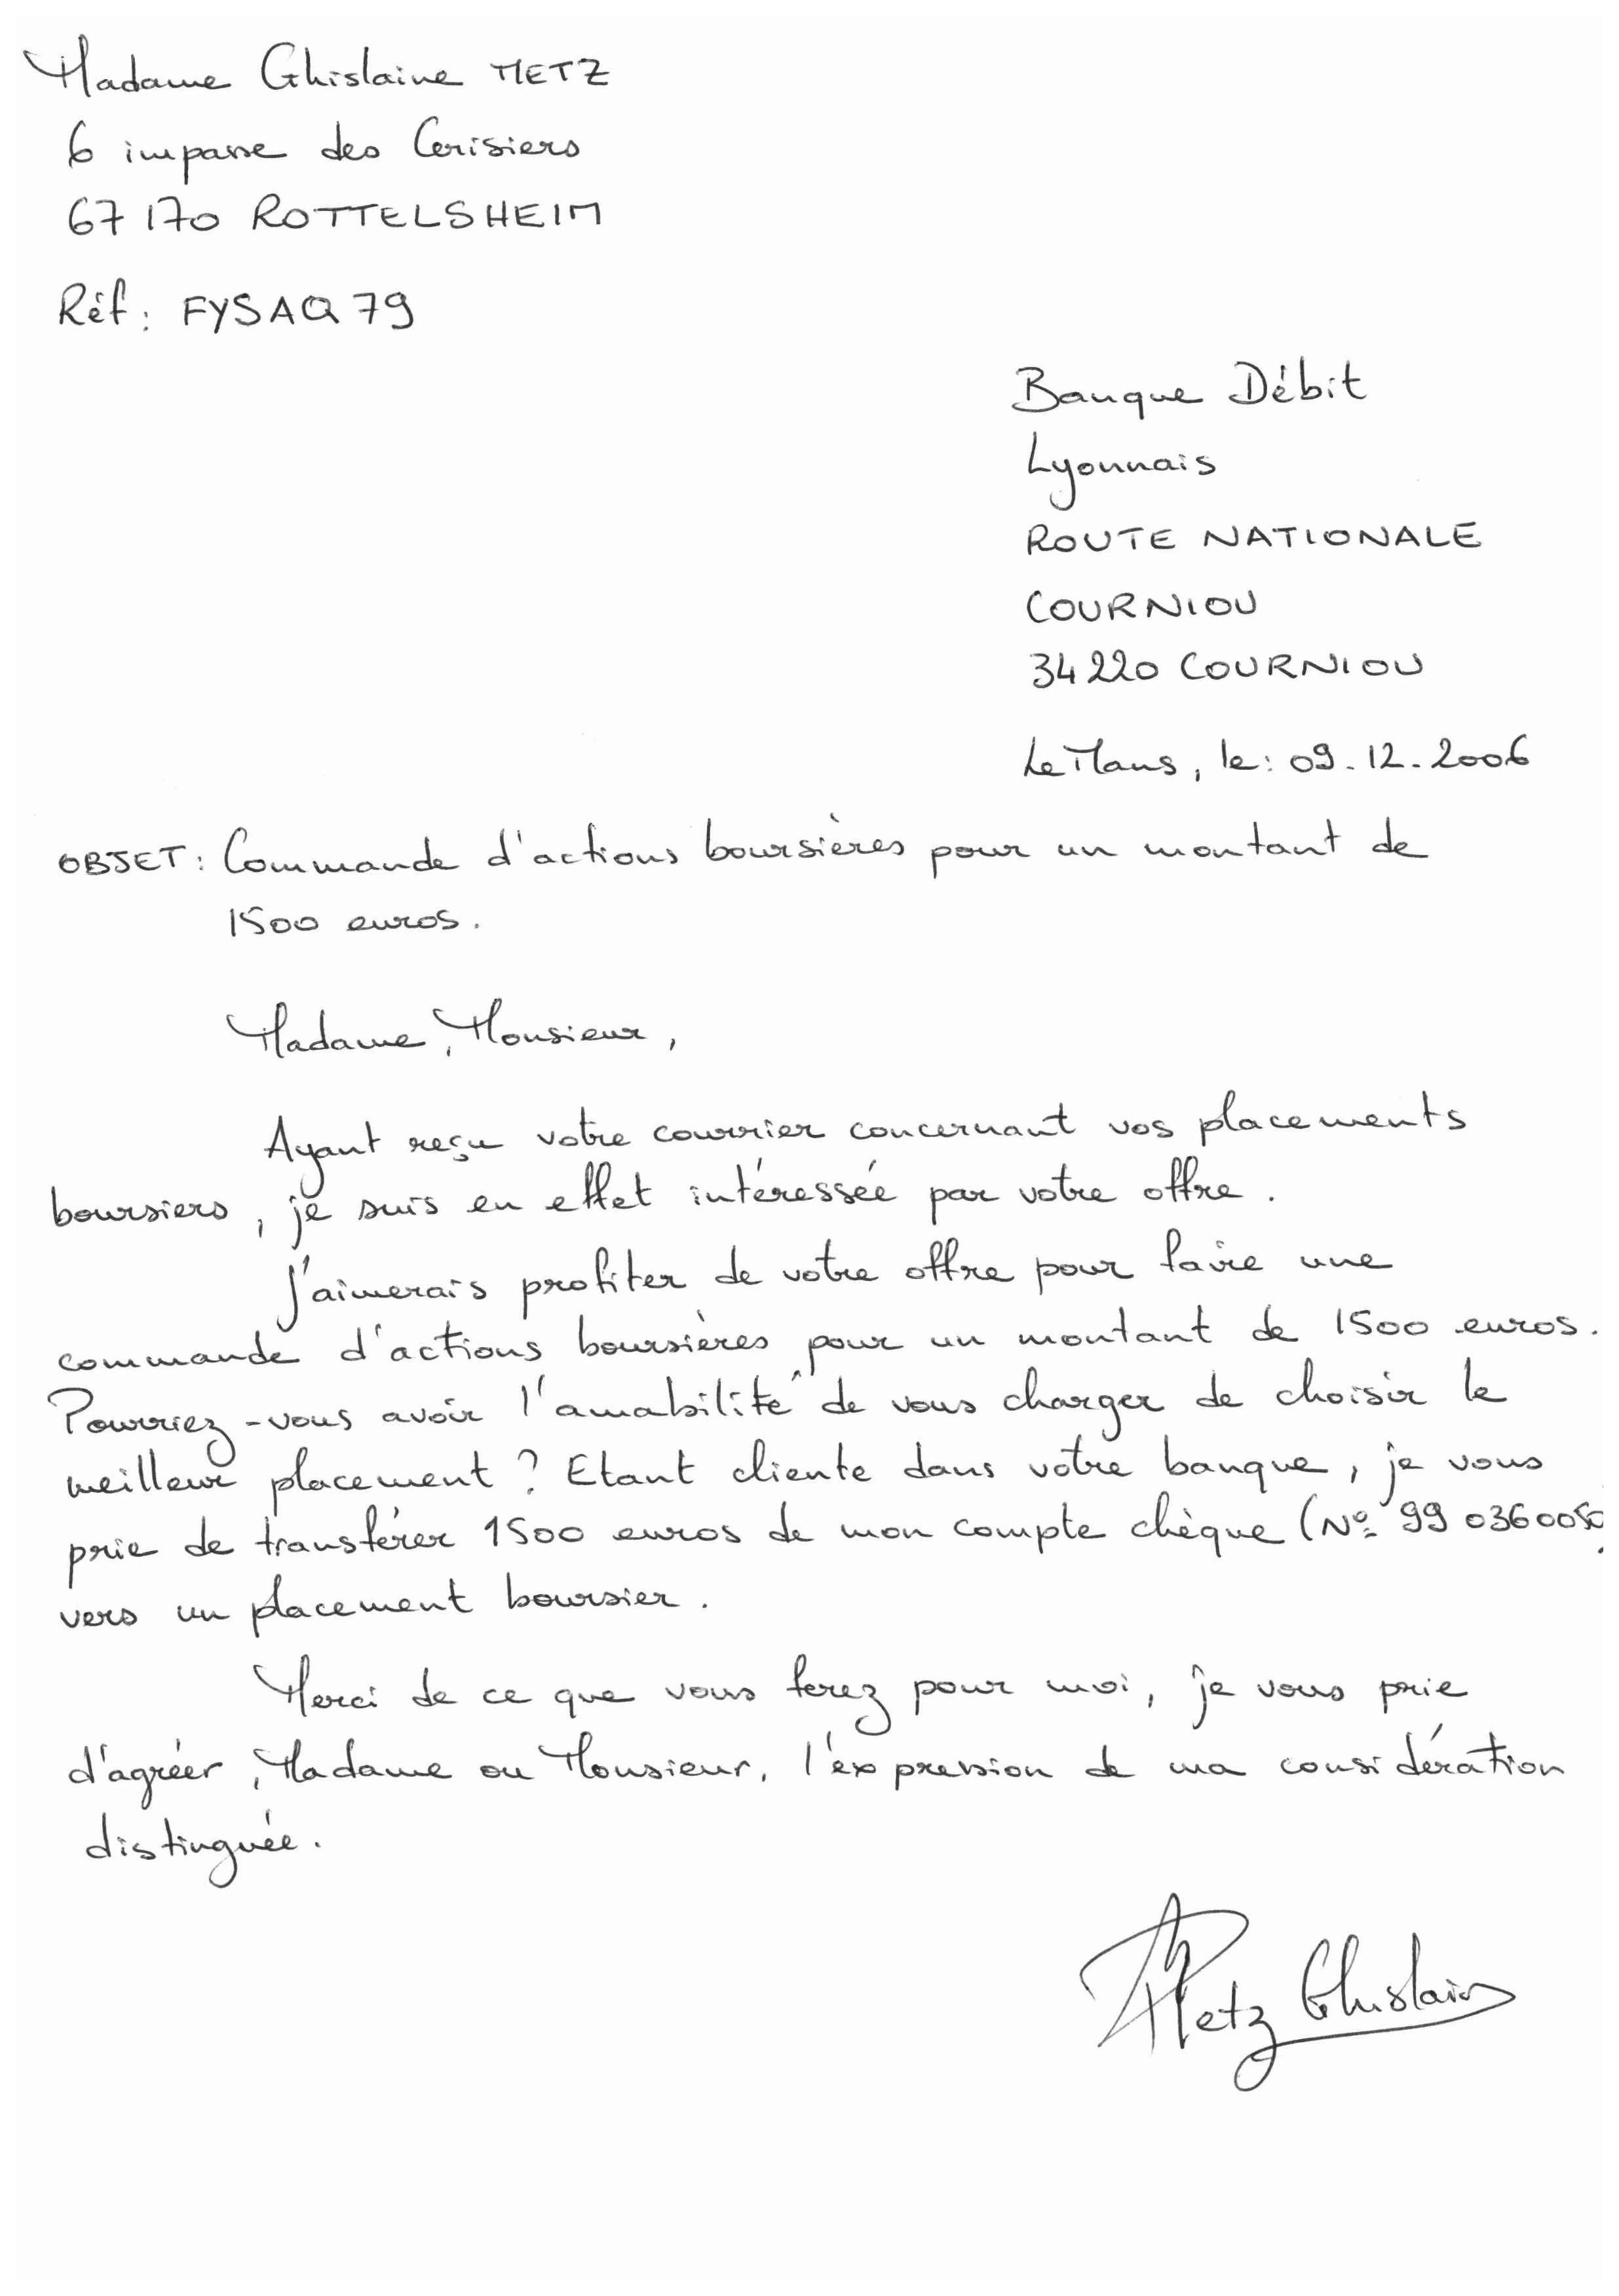 Madame Ghislaine METZ
6 impasse des Cerisiers
67170 ROTTELSHEIM
Réf : FYSAQ79
Banque Débit
Lyonnais
ROUTE NATIONALE
COURNIOU
34220 COURNIOU
Le Mans, le : 09.12.2006
OBJET : Commande d'actions boursières pour un montant de
1500 euros.
Madame, Monsieur,
Ayant reçu votre courrier concernant vos placements
boursiers, je suis en effet intéressée par votre offre.
J'aimerais profiter de votre offre pour faire une
commande d'actions boursières pour un montant de 1500 euros.
Pourriez-vous avoir l'amabilité de vous charger de choisir le
meilleur placement ? Etant cliente dans votre banque, je vous
prie de transférer 1500 euros de mon compte chèque (N° 99 0360050
vers un placement boursier.
Merci de ce que vous ferez pour moi, je vous prie
d'agréer, Madame ou Monsieur, l'expression de ma considération
distinguée.
Metz Ghislaine